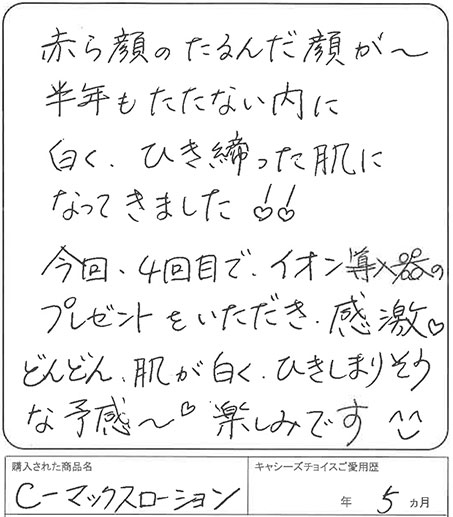 赤ら顔のたるんだ顔が〜
半年もたたない内に
白く、ひき締った肌に
なってきました!!
今回、4回目で、イオン導入器の
プレゼントをいただき、感激♡
どんどん、肌が白く、ひきしまりそう
な予感〜♡ 楽しみです ^^
購入された商品名
キャシーズチョイスご愛用歴
Cーマックスローション
年 5 カ月